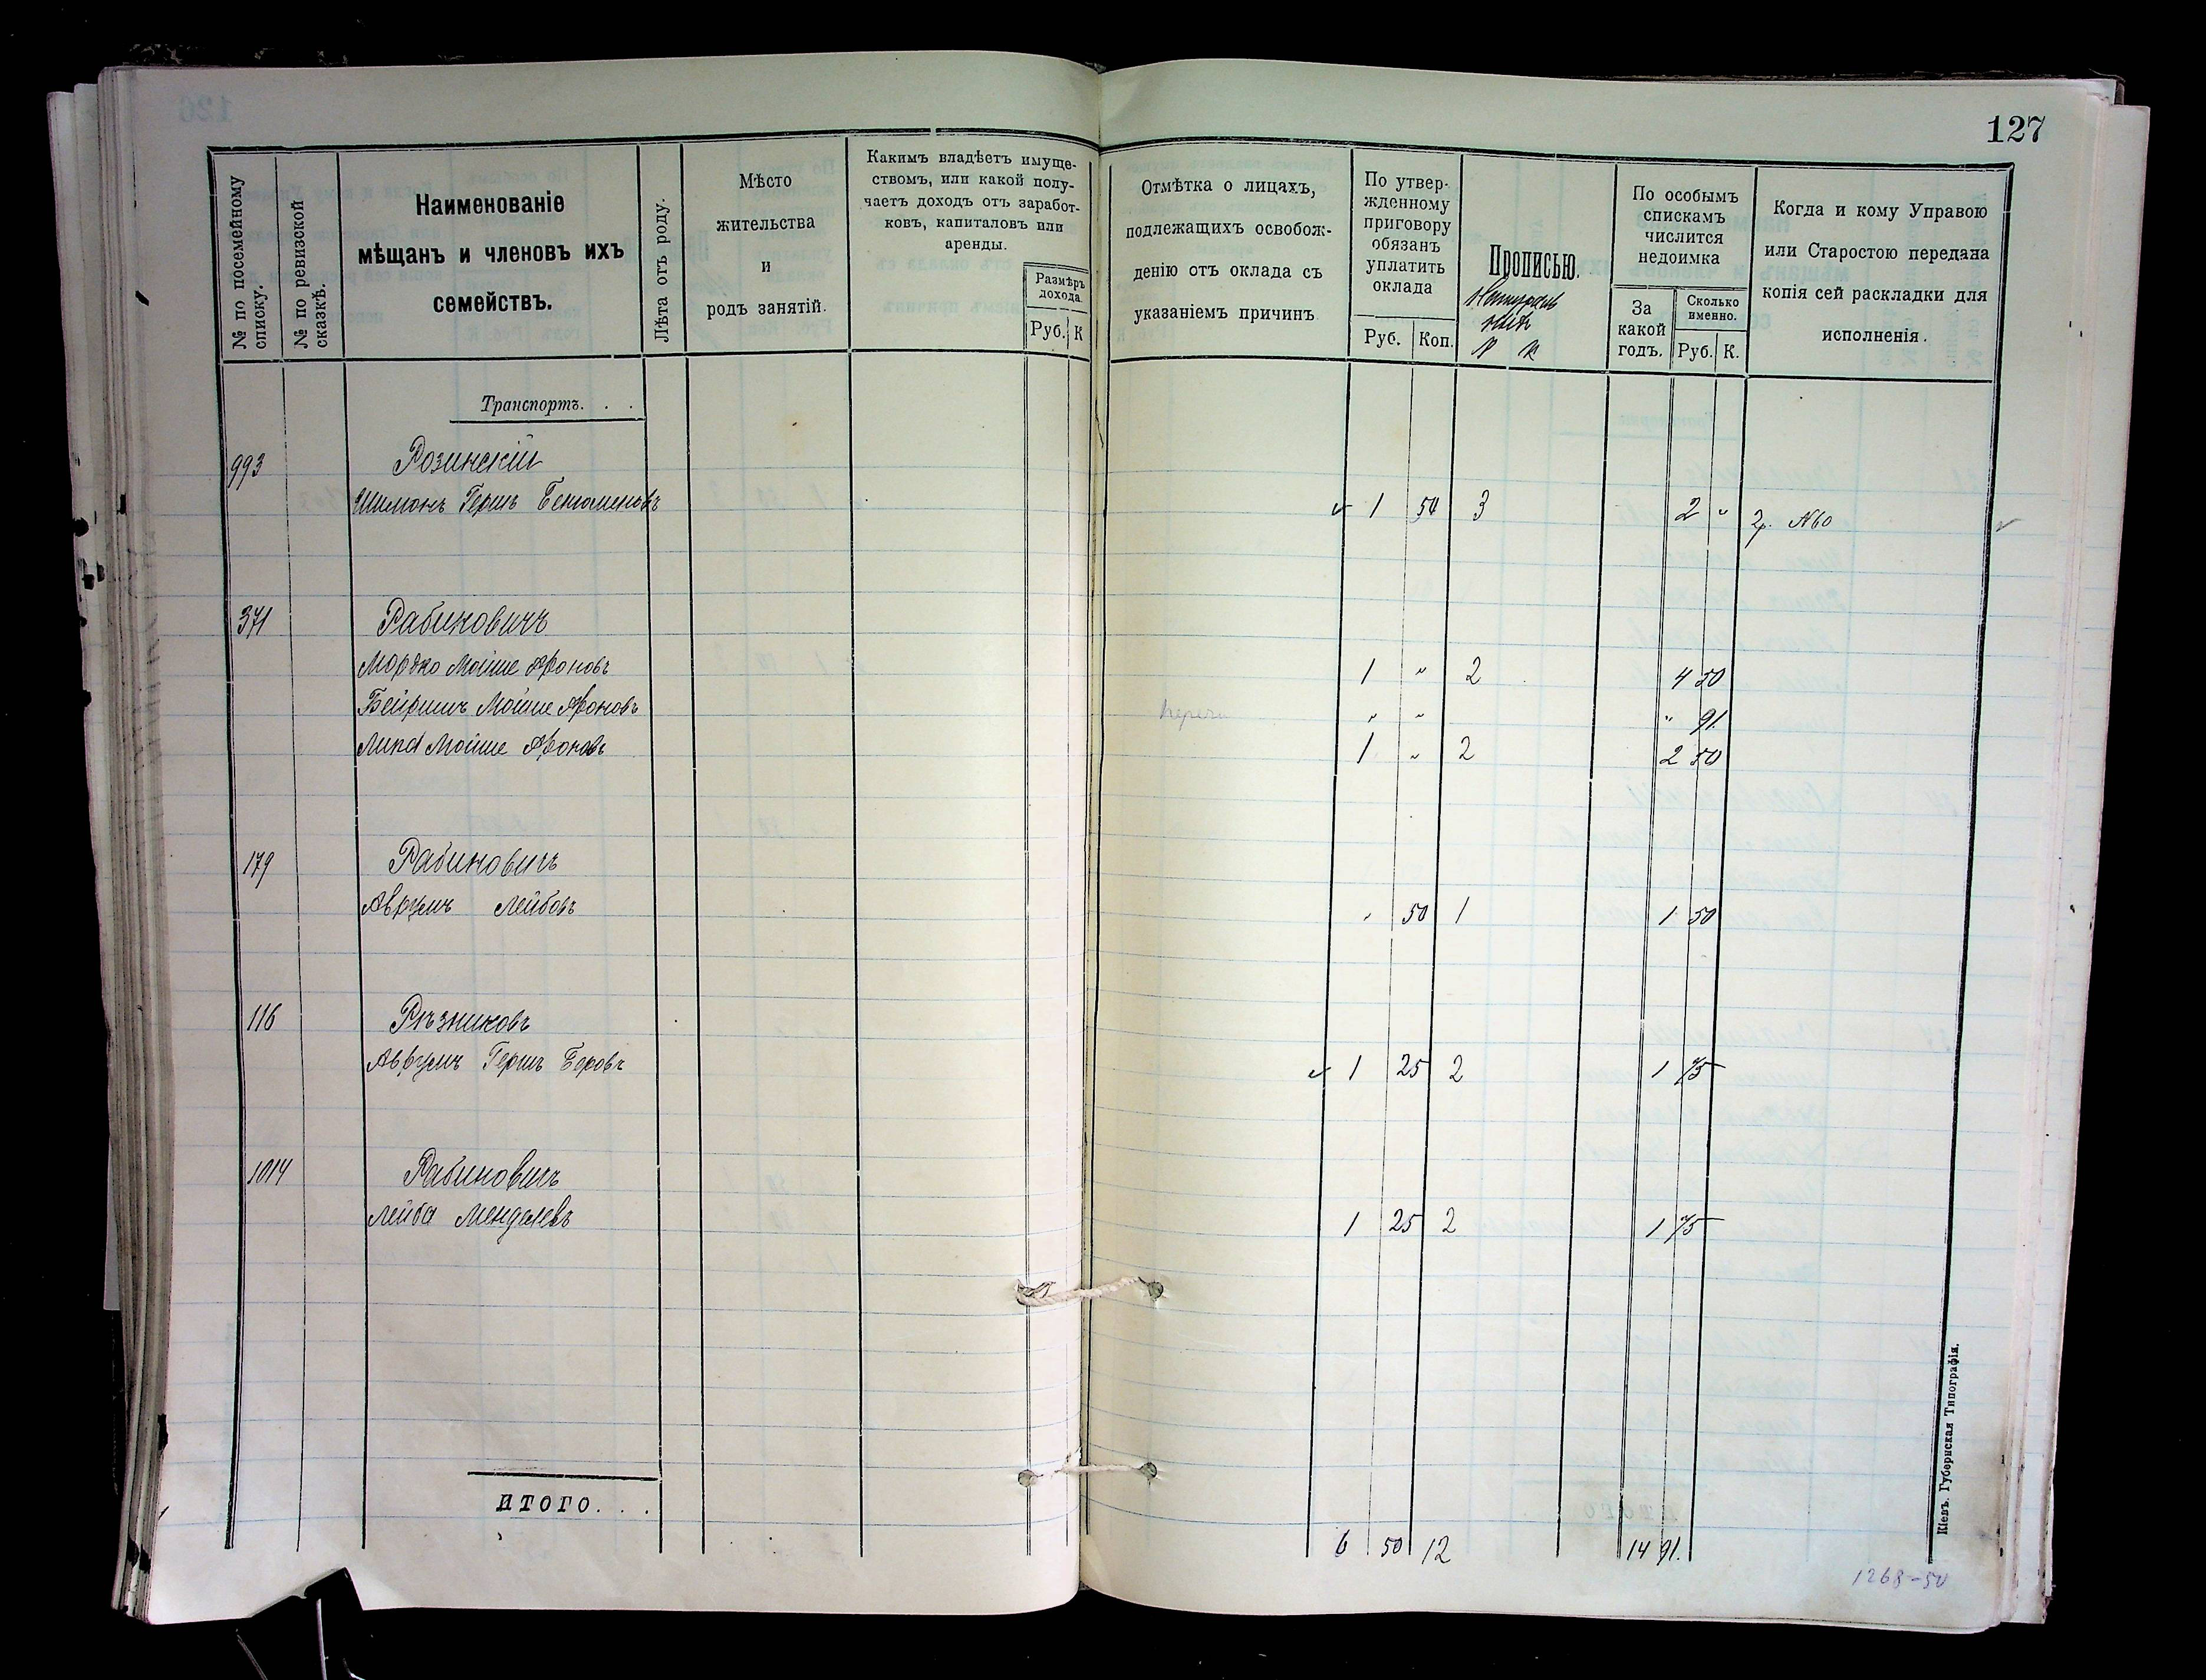 127
№ по посемейному списку.
№ по ревизской сказкѣ.
Наименованіе
мѣщанъ и членовъ ихъ
семействъ.
Лѣта отъ роду.
Мѣсто
жительства
и
родъ занятій.
Какимъ владѣетъ имуще-
ствомъ, или какой полу-
чаетъ доходъ отъ заработ-
ковъ, капиталовъ или
аренды.
Размѣръ
дохода.
Руб. К
Отмѣтка о лицахъ,
подлежащихъ освобож-
денію отъ оклада съ
указаніемъ причинъ
По утвер-
жденному
приговору
обязанъ
уплатить
оклада
Руб. Коп.
Прописью.
По особымъ
спискамъ
числится
недоимка
За
какой
годъ.
Сколько
именно.
Руб. К.
Когда и кому Управою
или Старостою передана
копія сей раскладки для
исполненія.
Транспортъ. . .
993 Розинскій
Шимонъ Гершъ Беньяменовъ 1 50 3 2 " 2р. №60
371 Рабиновичъ
Мордко Мойше Ароновъ 1 " 2 4 50
Бейришъ Мойше Ароновъ " " " 91.
Липа Мойше Ароновъ 1 " 2 2 50
179 Рабиновичъ
Аврумъ Лейбовъ " 50 1 1 50
116 Рѣзниковъ
Аврумъ Гершъ Беровъ 1 25 2 1 75
1014 Рабиновичъ
Лейба Менделевъ 1 25 2 1 75
ИТОГО. . .
6 50 12 14 91.
1268-50
Кіевъ. Губернская Типографія.